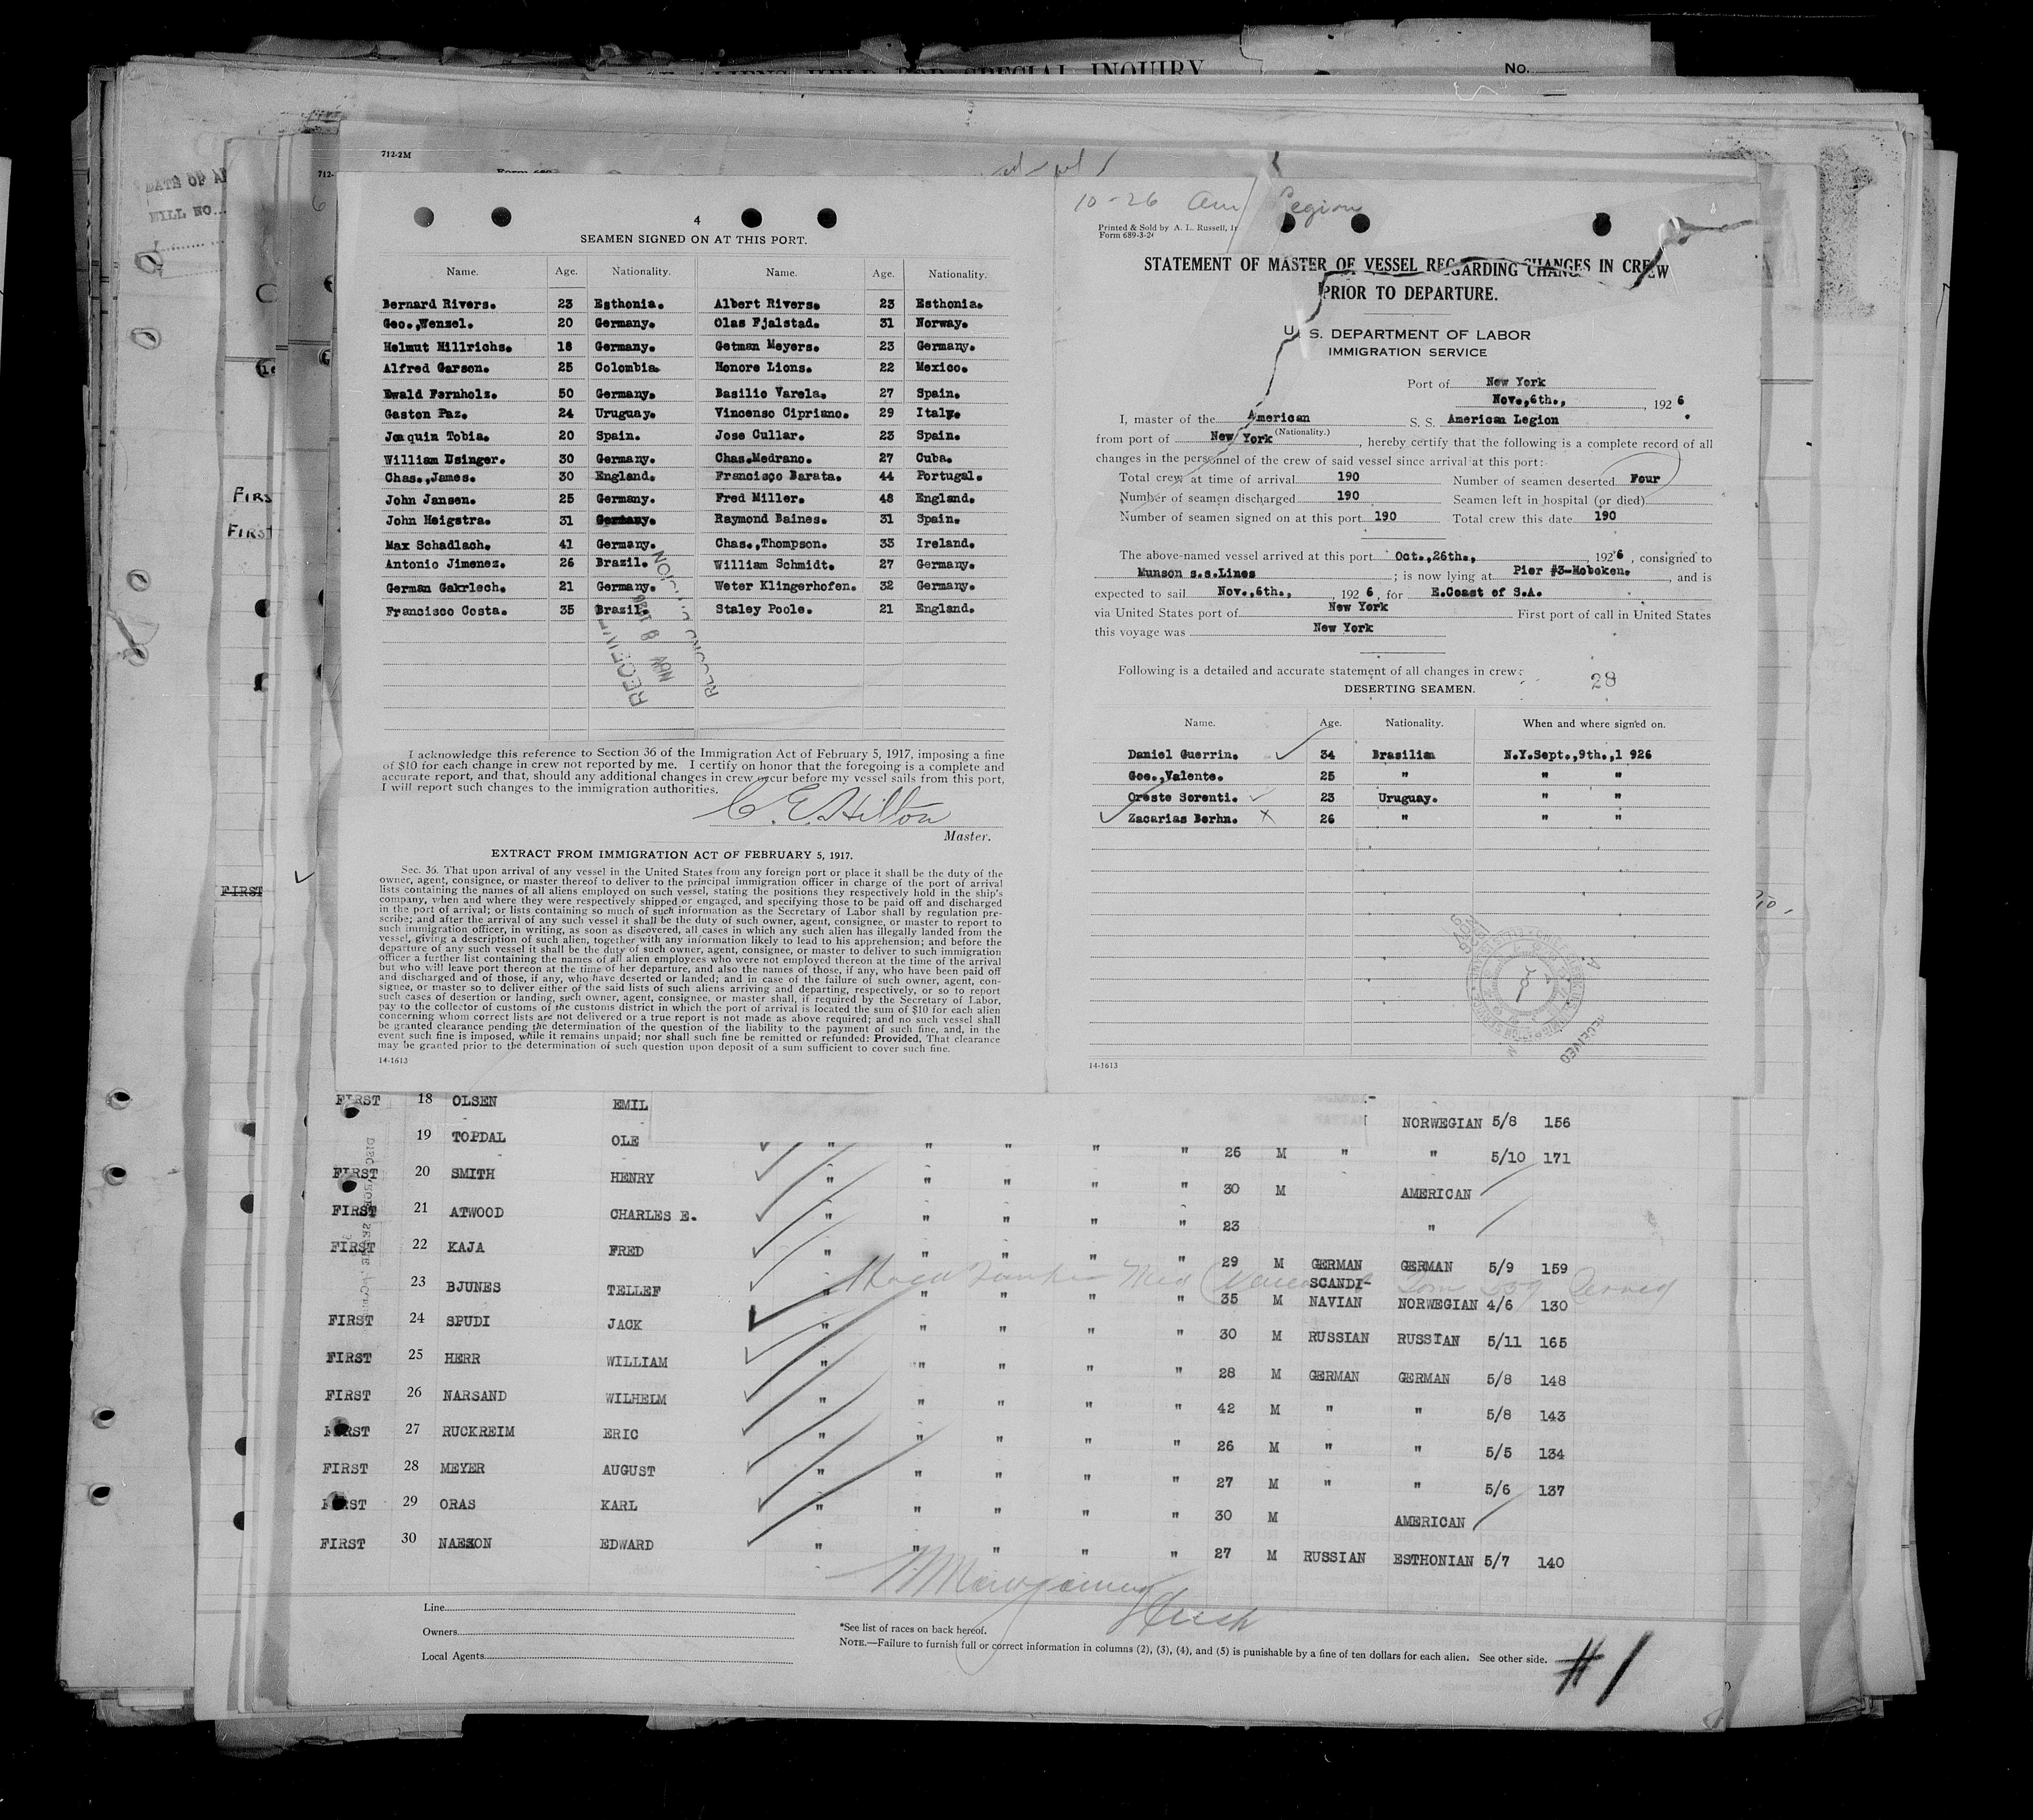 ALIENS HELD FOR SPECIAL INQUIRY
No.
DATE OF
712-2M
712-
4
SEAMEN SIGNED ON AT THIS PORT.
Name. Age. Nationality. Name. Age. Nationality.
Bernard Rivers. 23 Esthonia. Albert Rivers. 23 Esthonia.
Geo.,Wenzel. 20 Germany. Olas Fjalstad. 31 Norway.
Helmut Hillrichs. 18 Germany. Getman Meyers. 23 Germany.
Alfred Garson. 25 Colombia. Honore Lions. 22 Mexico.
Ewald Fernholz. 50 Germany. Basilio Varela. 27 Spain.
Gaston Paz. 24 Uruguay. Vincenso Cipriano. 29 Italy.
Joaquin Tobia. 20 Spain. Jose Cullar. 23 Spain.
William Usinger. 30 Germany. Chas.Medrano. 27 Cuba.
Chas.,James. 30 England. Francisço Barata. 44 Portugal.
John Jansen. 25 Germany. Fred Miller. 48 England.
John Heigstra. 31 Germany. Raymond Baines. 31 Spain.
Max Schadlach. 41 Germany. Chas.,Thompson. 33 Ireland.
Antonio Jimenez. 26 Brazil. William Schmidt. 27 Germany.
German Gakrlech. 21 Germany. Weter Klingerhofen. 32 Germany.
Francisco Costa. 35 Brazil. Staley Poole. 21 England.
I acknowledge this reference to Section 36 of the Immigration Act of February 5, 1917, imposing a fine
of $10 for each change in crew not reported by me. I certify on honor that the foregoing is a complete and
accurate report, and that, should any additional changes in crew occur before my vessel sails from this port,
I will report such changes to the immigration authorities.
C. E. Hilton
Master.
EXTRACT FROM IMMIGRATION ACT OF FEBRUARY 5, 1917.
Sec. 36. That upon arrival of any vessel in the United States from any foreign port or place it shall be the duty of the
owner, agent, consignee, or master thereof to deliver to the principal immigration officer in charge of the port of arrival
lists containing the names of all aliens employed on such vessel, stating the positions they respectively hold in the ship's
company, when and where they were respectively shipped or engaged, and specifying those to be paid off and discharged
in the port of arrival; or lists containing so much of such information as the Secretary of Labor shall by regulation pre-
scribe; and after the arrival of any such vessel it shall be the duty of such owner, agent, consignee, or master to report to
such immigration officer, in writing, as soon as discovered, all cases in which any such alien has illegally landed from the
vessel, giving a description of such alien, together with any information likely to lead to his apprehension; and before the
departure of any such vessel it shall be the duty of such owner, agent, consignee, or master to deliver to such immigration
officer a further list containing the names of all alien employees who were not employed thereon at the time of the arrival
but who will leave port thereon at the time of her departure, and also the names of those, if any, who have been paid off
and discharged and of those, if any, who have deserted or landed; and in case of the failure of such owner, agent, con-
signee, or master so to deliver either of the said lists of such aliens arriving and departing, respectively, or so to report
such cases of desertion or landing, such owner, agent, consignee, or master shall, if required by the Secretary of Labor,
pay to the collector of customs of the customs district in which the port of arrival is located the sum of $10 for each alien
concerning whom correct lists are not delivered or a true report is not made as above required; and no such vessel shall
be granted clearance pending the determination of the question of the liability to the payment of such fine, and, in the
event such fine is imposed, while it remains unpaid; nor shall such fine be remitted or refunded: Provided, That clearance
may be granted prior to the determination of such question upon deposit of a sum sufficient to cover such fine.
14-1613
10-26 Am Legion
Printed & Sold by A. L. Russell,
Form 689-3-2
STATEMENT OF MASTER OF VESSEL REGARDING CHANGES IN CREW
PRIOR TO DEPARTURE.
U. S. DEPARTMENT OF LABOR
IMMIGRATION SERVICE
Port of New York
Nov.,6th., , 192 6
I, master of the American S. S. American Legion
(Nationality.)
from port of New York , hereby certify that the following is a complete record of all
changes in the personnel of the crew of said vessel since arrival at this port:
Total crew at time of arrival 190 Number of seamen deserted Four
Number of seamen discharged 190 Seamen left in hospital (or died)
Number of seamen signed on at this port 190 Total crew this date 190
The above-named vessel arrived at this port Oct.,26th., , 192 6 , consigned to
Munson s.s.Lines ; is now lying at Pier #3-Hoboken. , and is
expected to sail Nov.,6th., , 192 6 , for E.Coast of S.A.
via United States port of New York First port of call in United States
this voyage was New York
Following is a detailed and accurate statement of all changes in crew:
28
DESERTING SEAMEN.
Name. Age. Nationality. When and where signed on.
Daniel Guerrin. 34 Brasilian N.Y.Sept.,9th.,1 926
Goe.,Valente. 25 " " "
Oreste Sorenti. 23 Uruguay. " "
Zacarias Berhn. 26 " " "
14-1613
FIRST 18 OLSEN EMIL NORWEGIAN 5/8 156
19 TOPDAL OLE " " " " " 26 M " " 5/10 171
FIRST 20 SMITH HENRY " " " " " 30 M AMERICAN
FIRST 21 ATWOOD CHARLES E. " " " " " 23 "
FIRST 22 KAJA FRED " " " " " 29 M GERMAN GERMAN 5/9 159
23 BJUNES TELLEF " " " " " 35 M SCANDI-NAVIAN NORWEGIAN 4/6 130
FIRST 24 SPUDI JACK " " " " " 30 M RUSSIAN RUSSIAN 5/11 165
FIRST 25 HERR WILLIAM " " " " " 28 M GERMAN GERMAN 5/8 148
FIRST 26 NARSAND WILHELM " " " " " 42 M " " 5/8 143
FIRST 27 RUCKREIM ERIC " " " " " 26 M " " 5/5 134
FIRST 28 MEYER AUGUST " " " " " 27 M " " 5/6 137
FIRST 29 ORAS KARL " " " " " 30 M AMERICAN
FIRST 30 NAESON EDWARD " " " " " 27 M RUSSIAN ESTHONIAN 5/7 140
Line
Owners
Local Agents
*See list of races on back hereof.
NOTE.—Failure to furnish full or correct information in columns (2), (3), (4), and (5) is punishable by a fine of ten dollars for each alien. See other side.
#1